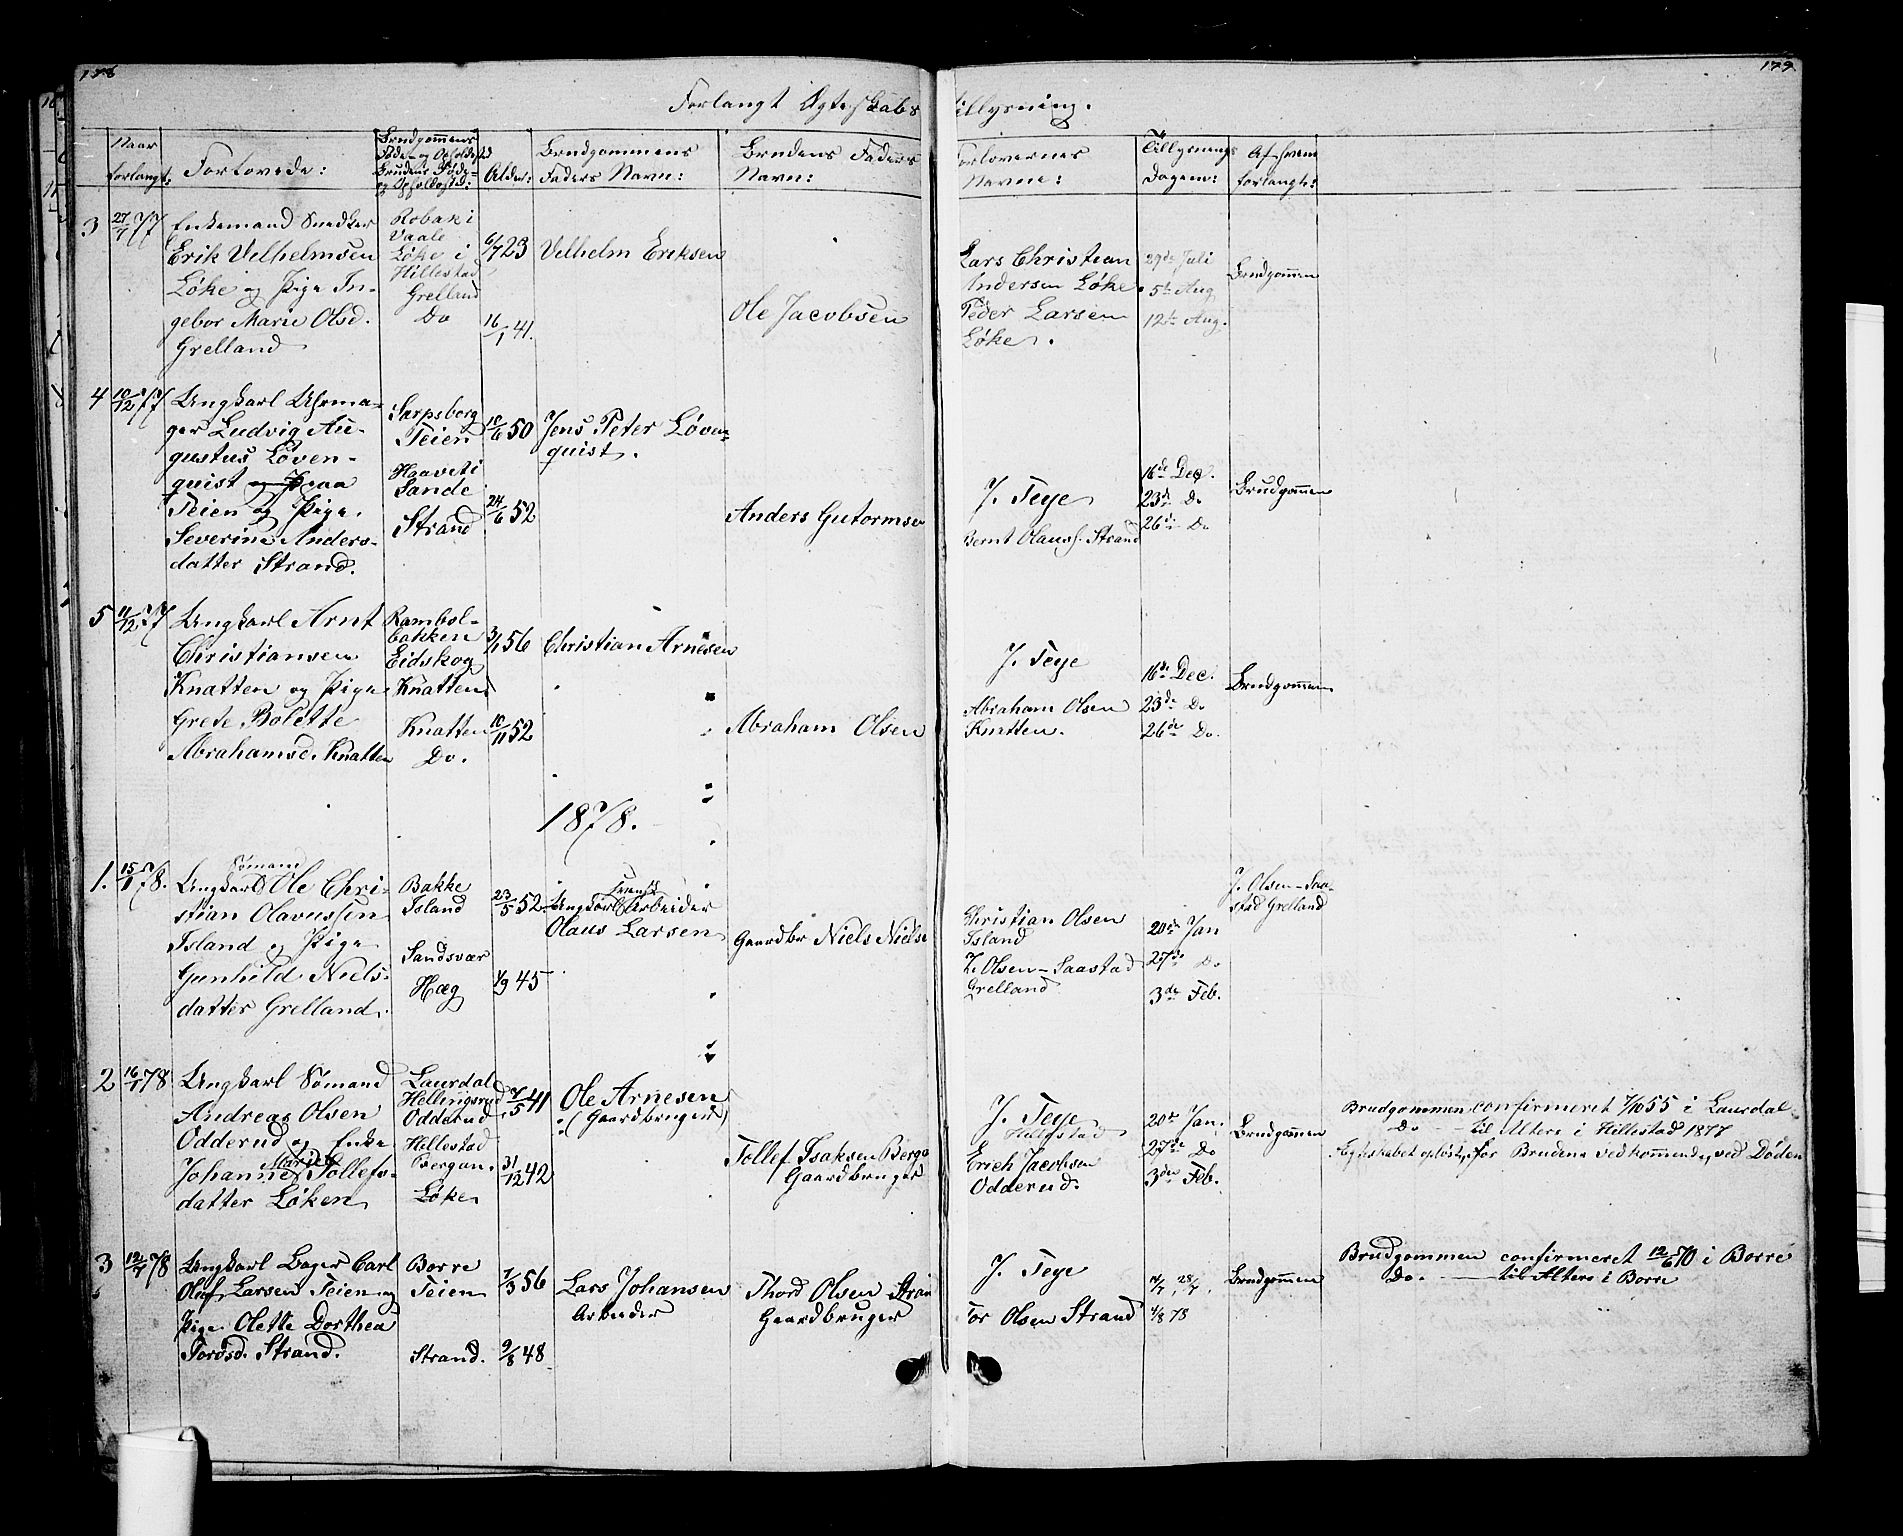 178
179
Forlangt Ægteskabs tillysning.
Naar forlangt:
Forlovede:
Brudgommens Føde- og Opholdssted
Brudens Føde- og Opholdssted:
Alder:
Brudgommens Faders Navn:
Brudens Faders Navn:
Forlovernes Navne:
Tillysnings Dagene:
Af hvem forlangt:
3
27/7 77
Enkemand Snedker
Erik Velhelmsen
Løke og Pige In-
gebor Marie Olsd.
Grelland
Robak i
Vaale
Løke i
Hillestad
Grelland
Do
6/7 23
16/1 41.
Velhelm Eriksen
Ole Jacobsen
Lars Christian
Andersen Løke
Peder Larsen
Løke.
29de Juli
5te Aug
12te Aug.
Brudgommen
4
10/12 77
Ungkarl Uhrma-
ger Ludvig Au-
gustus Löven-
quist og Paa
Teien og Pige
Severine Anders-
datter Strand.
Sarpsborg
Teien
Haavet i
Sande
Strand
10/6 50
24/6 52
Jens Peter Löven-
quist.
Anders Gutormsen
J. Teye
Bernt Olauss. Strand
16de Dec.
23de Do
26de Do
Brudgommen
5
11/12 77
Ungkarl Arnt
Christiansen
Knatten og Pige
Grete Bolette
Abrahamsd. Knatten
Rambol-
bakken
Eidskog
Knatten
Knatten
Do.
3/1 56
10/11 52
Christian Arnesen
Abraham Olsen
J. Teye
Abraham Olsen
Knatten.
16de Dec.
23de Do
26de Do.
Brudgommen
1878.
1.
15/1 78.
Sømand
Ungkarl Ole Chri-
stian Olavussen
Island og Pige
Gunhild Niels-
datter Grelland.
Bakke
Island
Sandsvær
Hæg
23/5 52
1/9 45
Svensk
Ungkarl Arbeider
Olaus Larsen
Gaardbr Niels Niels
Christian Olsen
Island
J. Olsen-Saastad
Grelland
20de Jan
27de Do
3de Feb.
J. Olsen-Saa-
stad Grelland
2
16/1 78
Ungkarl Sømand
Andreas Olsen
Odderud og Enke
Marie
Johanne Tollefs-
datter Løken
Laurdal
Hellingsrud
Odderud
Hillestad
Bergan
Løke
7/5 41
31/12 42
Ole Arnesen
(Gaardbruger)
Tollef Isaksen Berg
Gaardbruger
J. Teye
Hillestad
Erich Jacobsen
Odderud.
20de Jan.
27de Do
3de Feb.
Brudgommen
Brudgommen confirmeret 7/10 55 i Laurdal
Do til Alters i Hillestad 1877
Ægteskabet opløst, for Brudens vedkommende, ved Døden
3
12/7 78
Ungkarl Bager Carl
Oluf Larsen Teien og
Pige Olette Dorthea
Tordsd. Strand.
Borre
Teien
Strand.
7/3 56
9/8 48
Lars Johansen
Arbeider
Thord Olsen Stran
Gaardbruger
J. Teye
Tor Olsen Strand
14/7, 28/7,
4/8 78
Brudgommen
Brudgommen confirmeret 12/6 70 i Borre
Do. til Alters i Borre